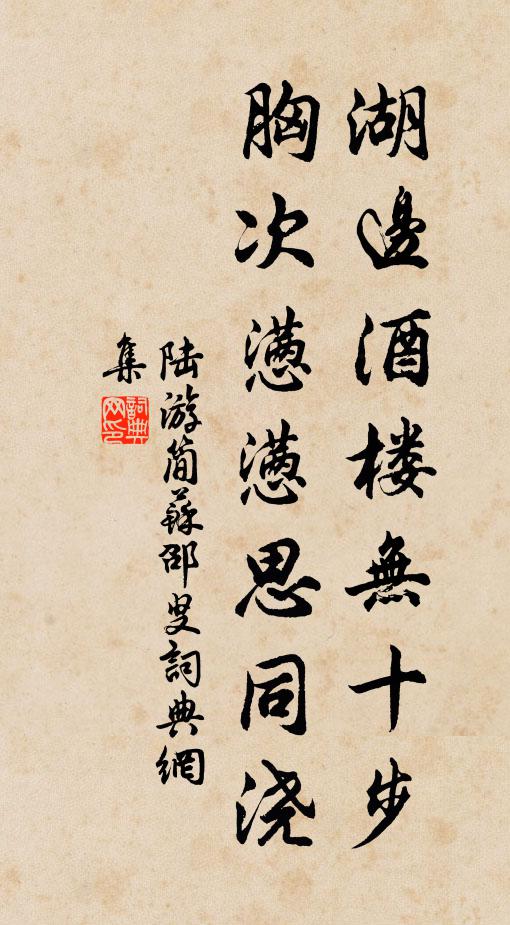 湖邊酒楼無十步
胸次懑懑思同浇
陆游简蘇邵叟詞典網
集
詞典網印